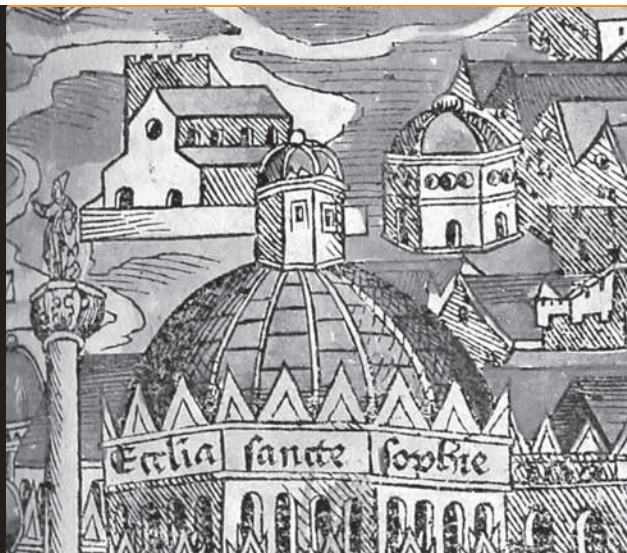 Ecclia sancte sophie